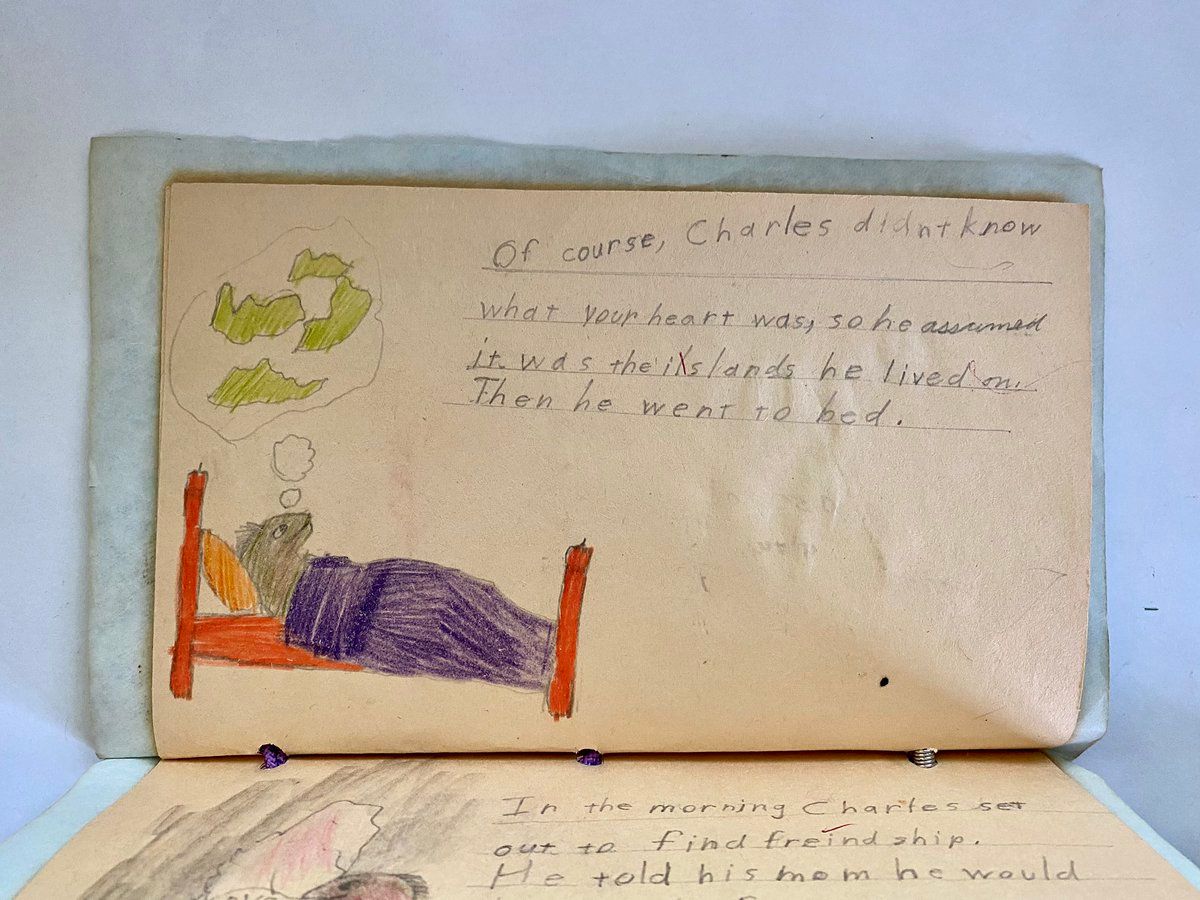 Of course, Charles didnt know
what your heart was, so he assumed
it was the ilslands he lived on.
Then he went to bed.
In the morning Charles set
out to find freindship.
He told his mom he would